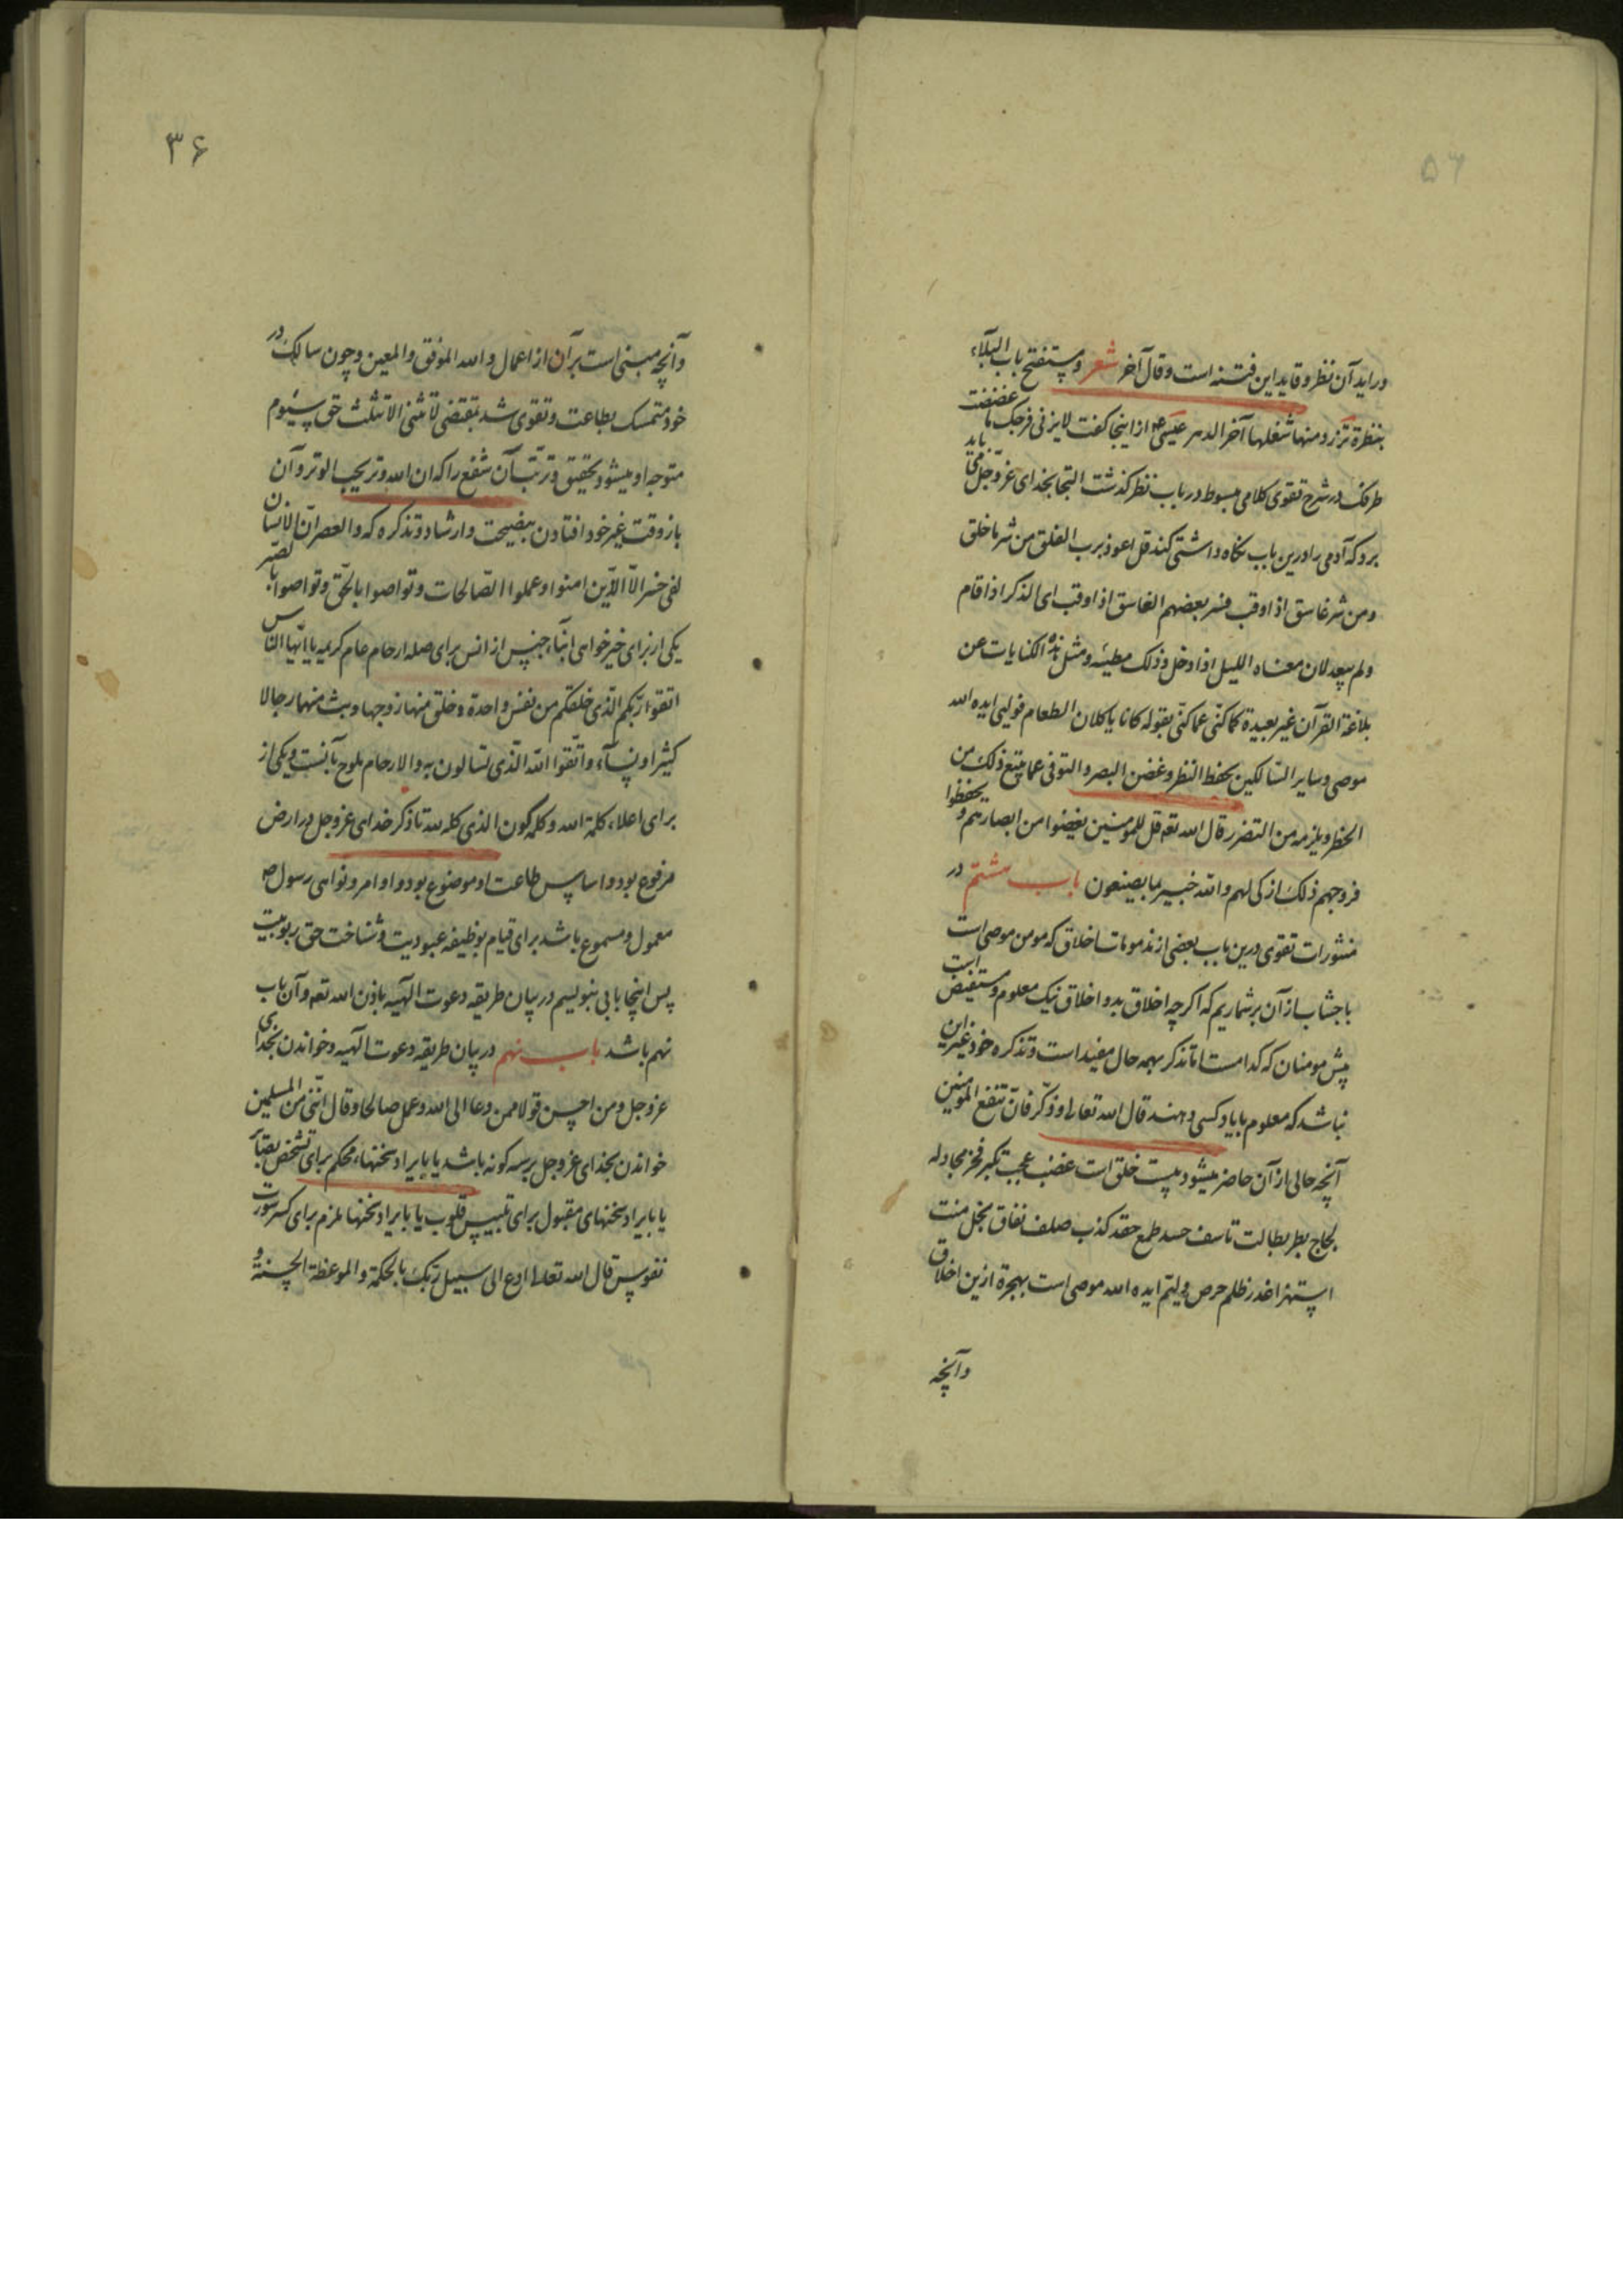 ۵۶
دراید آن نظر و قاید این فتنه است و قال آخر شعر و یستفتح باب البلاء
بنظرة تزرو منها شغلها آخر الدهر عیسی ع م از اینجا گفت لایزنی فرجک ما غضضت
طرفک در شرح تقوی کلامی مبسوط در باب نظر گذشت التجا بخدای عز و جل می باید
برد که آدمی را درین باب نگاه داشتی کند قل اعوذ برب الفلق من شر ما خلق
و من شر غاسق اذا وقب فسر بعضهم الغاسق اذا وقب ای الذکر اذا قام
و لم یبعد لان معناه اللیل اذا دخل و ذلک مطیته و مثل هذه الکنایات عن
بلاغة القرآن غیر بعیدة کما کنّی عما کنّی بقوله کانا یاکلان الطعام فولیی ایده الله
موصی و سایر السالکین بحفظ النظر و غض البصر و التوقی عما یتبع ذلک من
الحظر و یلزمه من التضرر قال الله تعه قل للمومنین یغضوا من ابصارهم و یحفظوا
فروجهم ذلک ازکی لهم و الله خبیر بما یصنعون باب هشتم در
منشورات تقوی درین باب بعضی از مذمومات اخلاق که مومن موصی است
باجتناب از آن برشماریم که اگرچه اخلاق بد و اخلاق نیک معلوم و مستفیض است
پیش مومنان که کدامست اما تذکر بهمه حال مفید است و تذکره خود غیر این
نباشد که معلوم با یاد کسی دهند قال الله تعالی و ذکّر فانّ تنفع المومنین
آنچه حالی از آن حاضر میشود بیست خلق است غضب عجب تکبر فخر مجادله
لجاج بطر بطالت تاسف حسد طمع حقد کذب صلف نفاق بخل منت
استهزا غدر ظلم حرص ولیّم ایده الله موصی است بهجرة ازین اخلاق
وآنچه
۳۶
وآنچه مبنی است بر آن از اعمال و الله الموفق و المعین و چون سالک در
خود متمسک بطاعت و تقوی شد بمقتضی لا تثنی الا تثلث حق سیوم
متوجه او میشود بحقیق و ترتب آن شفع را که ان الله وتر یحب الوتر و آن
باز وقت غیر خود افتادن بنصیحت و ارشاد و تذکره که و العصر انّ الانسان
لفی خسر الّا الذین امنوا و عملوا الصالحات و تواصوا بالحق و تواصوا بالصبر
یکی از برای خیرخواهی ابناء جنس از انس برای صله ارحام عام کریمه یا ایها الناس
اتقوا ربکم الذی خلقکم من نفس واحدة و خلق منها زوجها و بث منهما رجالا
کثیرا و نساء و اتقوا الله الذی تسالون به و الارحام ملوح بآنست و یکی از
برای اعلاء کلمة الله و کله گون الذی کله لله تا ذکر خدای عز و جل در ارض
مرفوع بود و اساس طاعت او موضوع بود و اوامر و نواهی رسول ص
معمول و مسموع باشد برای قیام بوظیفه عبودیت و شناخت حق ربوبیت
پس اینجا بابی بنویسیم در بیان طریقه دعوت الهیه باذن الله تعه و آن باب
نهم باشد باب نهم در بیان طریقه دعوت الهیه و خواندن بخدای
عز و جل و من احسن قولا ممن دعا الی الله و عمل صالحا و قال اننی من المسلمین
خواندن بخدای عز و جل بر سه گونه باشد یا بایراد سخنهاء محکم برای تشخص بصائر
یا بایراد سخنهای مقبول برای تلبیس قلوب یا بایراد سخنها ملزم برای کسر سورت
نفوس قال الله تعلا ادع الی سبیل ربک بالحکمة و الموعظة الحسنة و